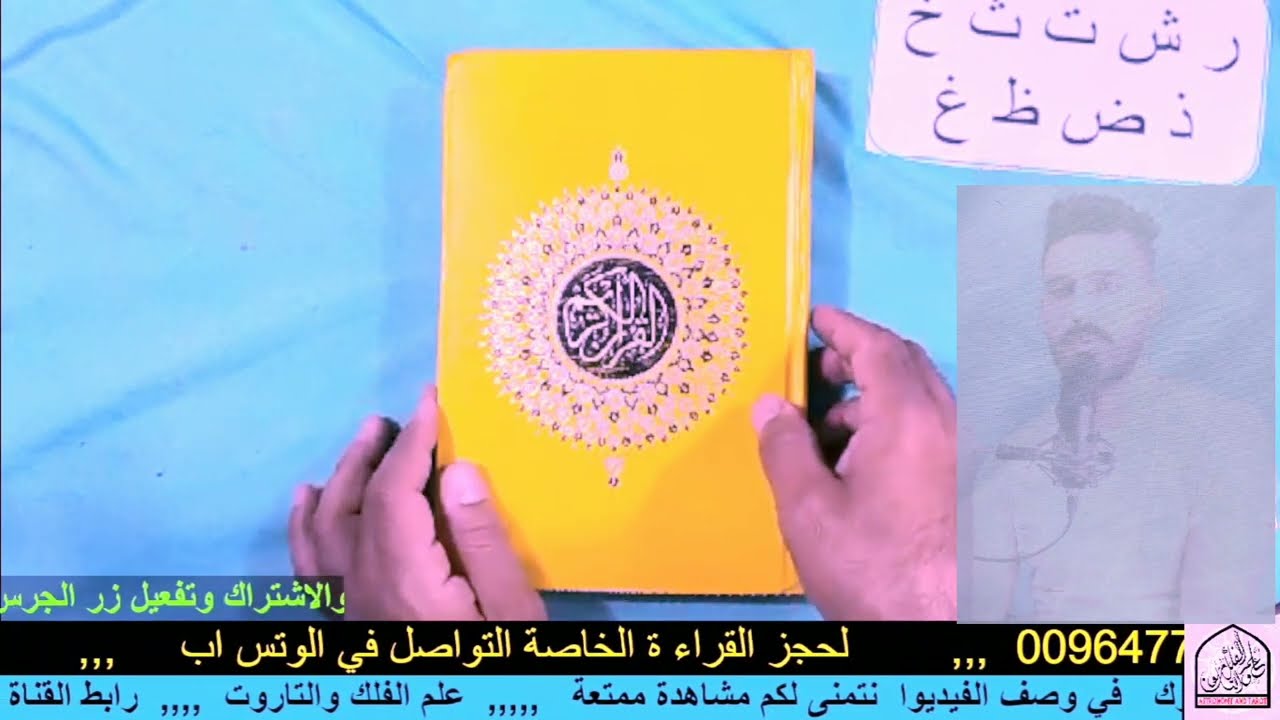 ر ش ت ث خ
ذ ض ظ غ
القرآن الكريم
والاشتراك وتفعيل زر الجرس
لحجز القراء ة الخاصة التواصل في الوتس اب ,,, 0096477 ,,,
في وصف الفيديوا نتمنى لكم مشاهدة ممتعة ,,,,, علم الفلك والتاروت ,,,, رابط القناة
ASTRONOMY AND TAROT